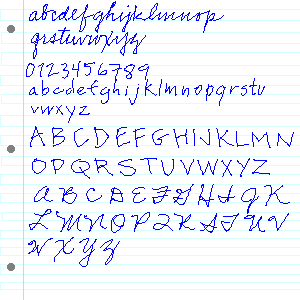 abcdefghijklmnop
qrstuvwxyz
0123456789
abcdefghijklmnopqrstu
vwxyz
ABCDEFGHIJKLMN
OPQRSTUVWXYZ
ABCDEFGHIJK
LMNOPQRSTUV
WXYZ